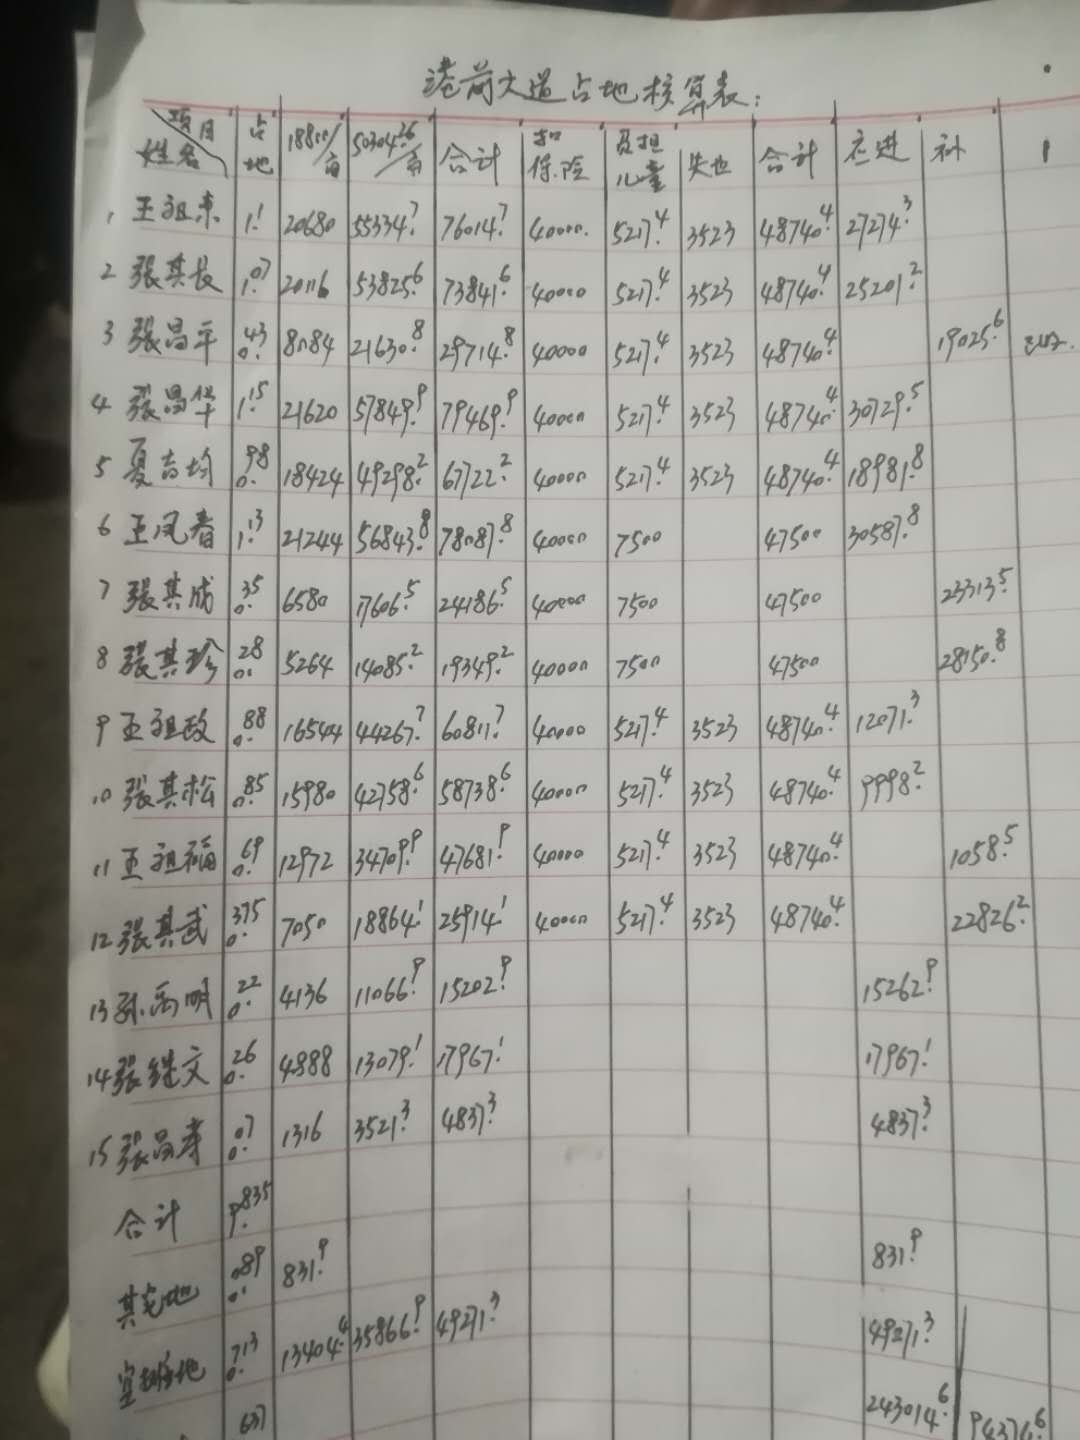 港荷大道占地核算表:
项目 姓名 占地 18800/亩 50304.26/亩 合计 扣保险 负担儿童 失地 合计 应进 补
1 王祖来 1.1 20680 55334.7 76014.7 40000 5217.4 3523 48740.4 27274.3
2 張其長 1.07 20116 53825.6 73841.6 40000 5217.4 3523 48740.4 25201.2
3 張昌平 0.43 8084 21630.8 29714.8 40000 5217.4 3523 48740.4 19025.6
4 張昌华 1.15 21620 57849.9 79469.9 40000 5217.4 3523 48740.4 30729.5
5 夏吉均 0.98 18424 49298.2 67722.2 40000 5217.4 3523 48740.4 18981.8
6 王凤春 1.13 21244 56843.8 78087.8 40000 7500 47500 30587.8
7 張其成 0.35 6580 17606.5 24186.5 40000 7500 47500 23313.5
8 張其珍 0.28 5264 14085.2 19349.2 40000 7500 47500 28150.8
9 王祖政 0.88 16544 44267.7 60811.7 40000 5217.4 3523 48740.4 12071.3
10 張其松 0.85 15980 42758.6 58738.6 40000 5217.4 3523 48740.4 9998.2
11 王祖福 0.69 12972 34709.9 47681.9 40000 5217.4 3523 48740.4 1058.5
12 張其武 0.375 7050 18864.1 25914.1 40000 5217.4 3523 48740.4 22826.2
13 孙禹明 0.22 4136 11066.9 15202.9 15262.9
14 張继文 0.26 4888 13079.1 17967.1 17967.1
15 張昌孝 0.07 1316 3521.3 4837.3 4837.3
合计 9.835
其它地 0.089 831.9 831.9
0.713 13404.4 35866.9 49271.3 49271.3
637 243014.6 94374.6